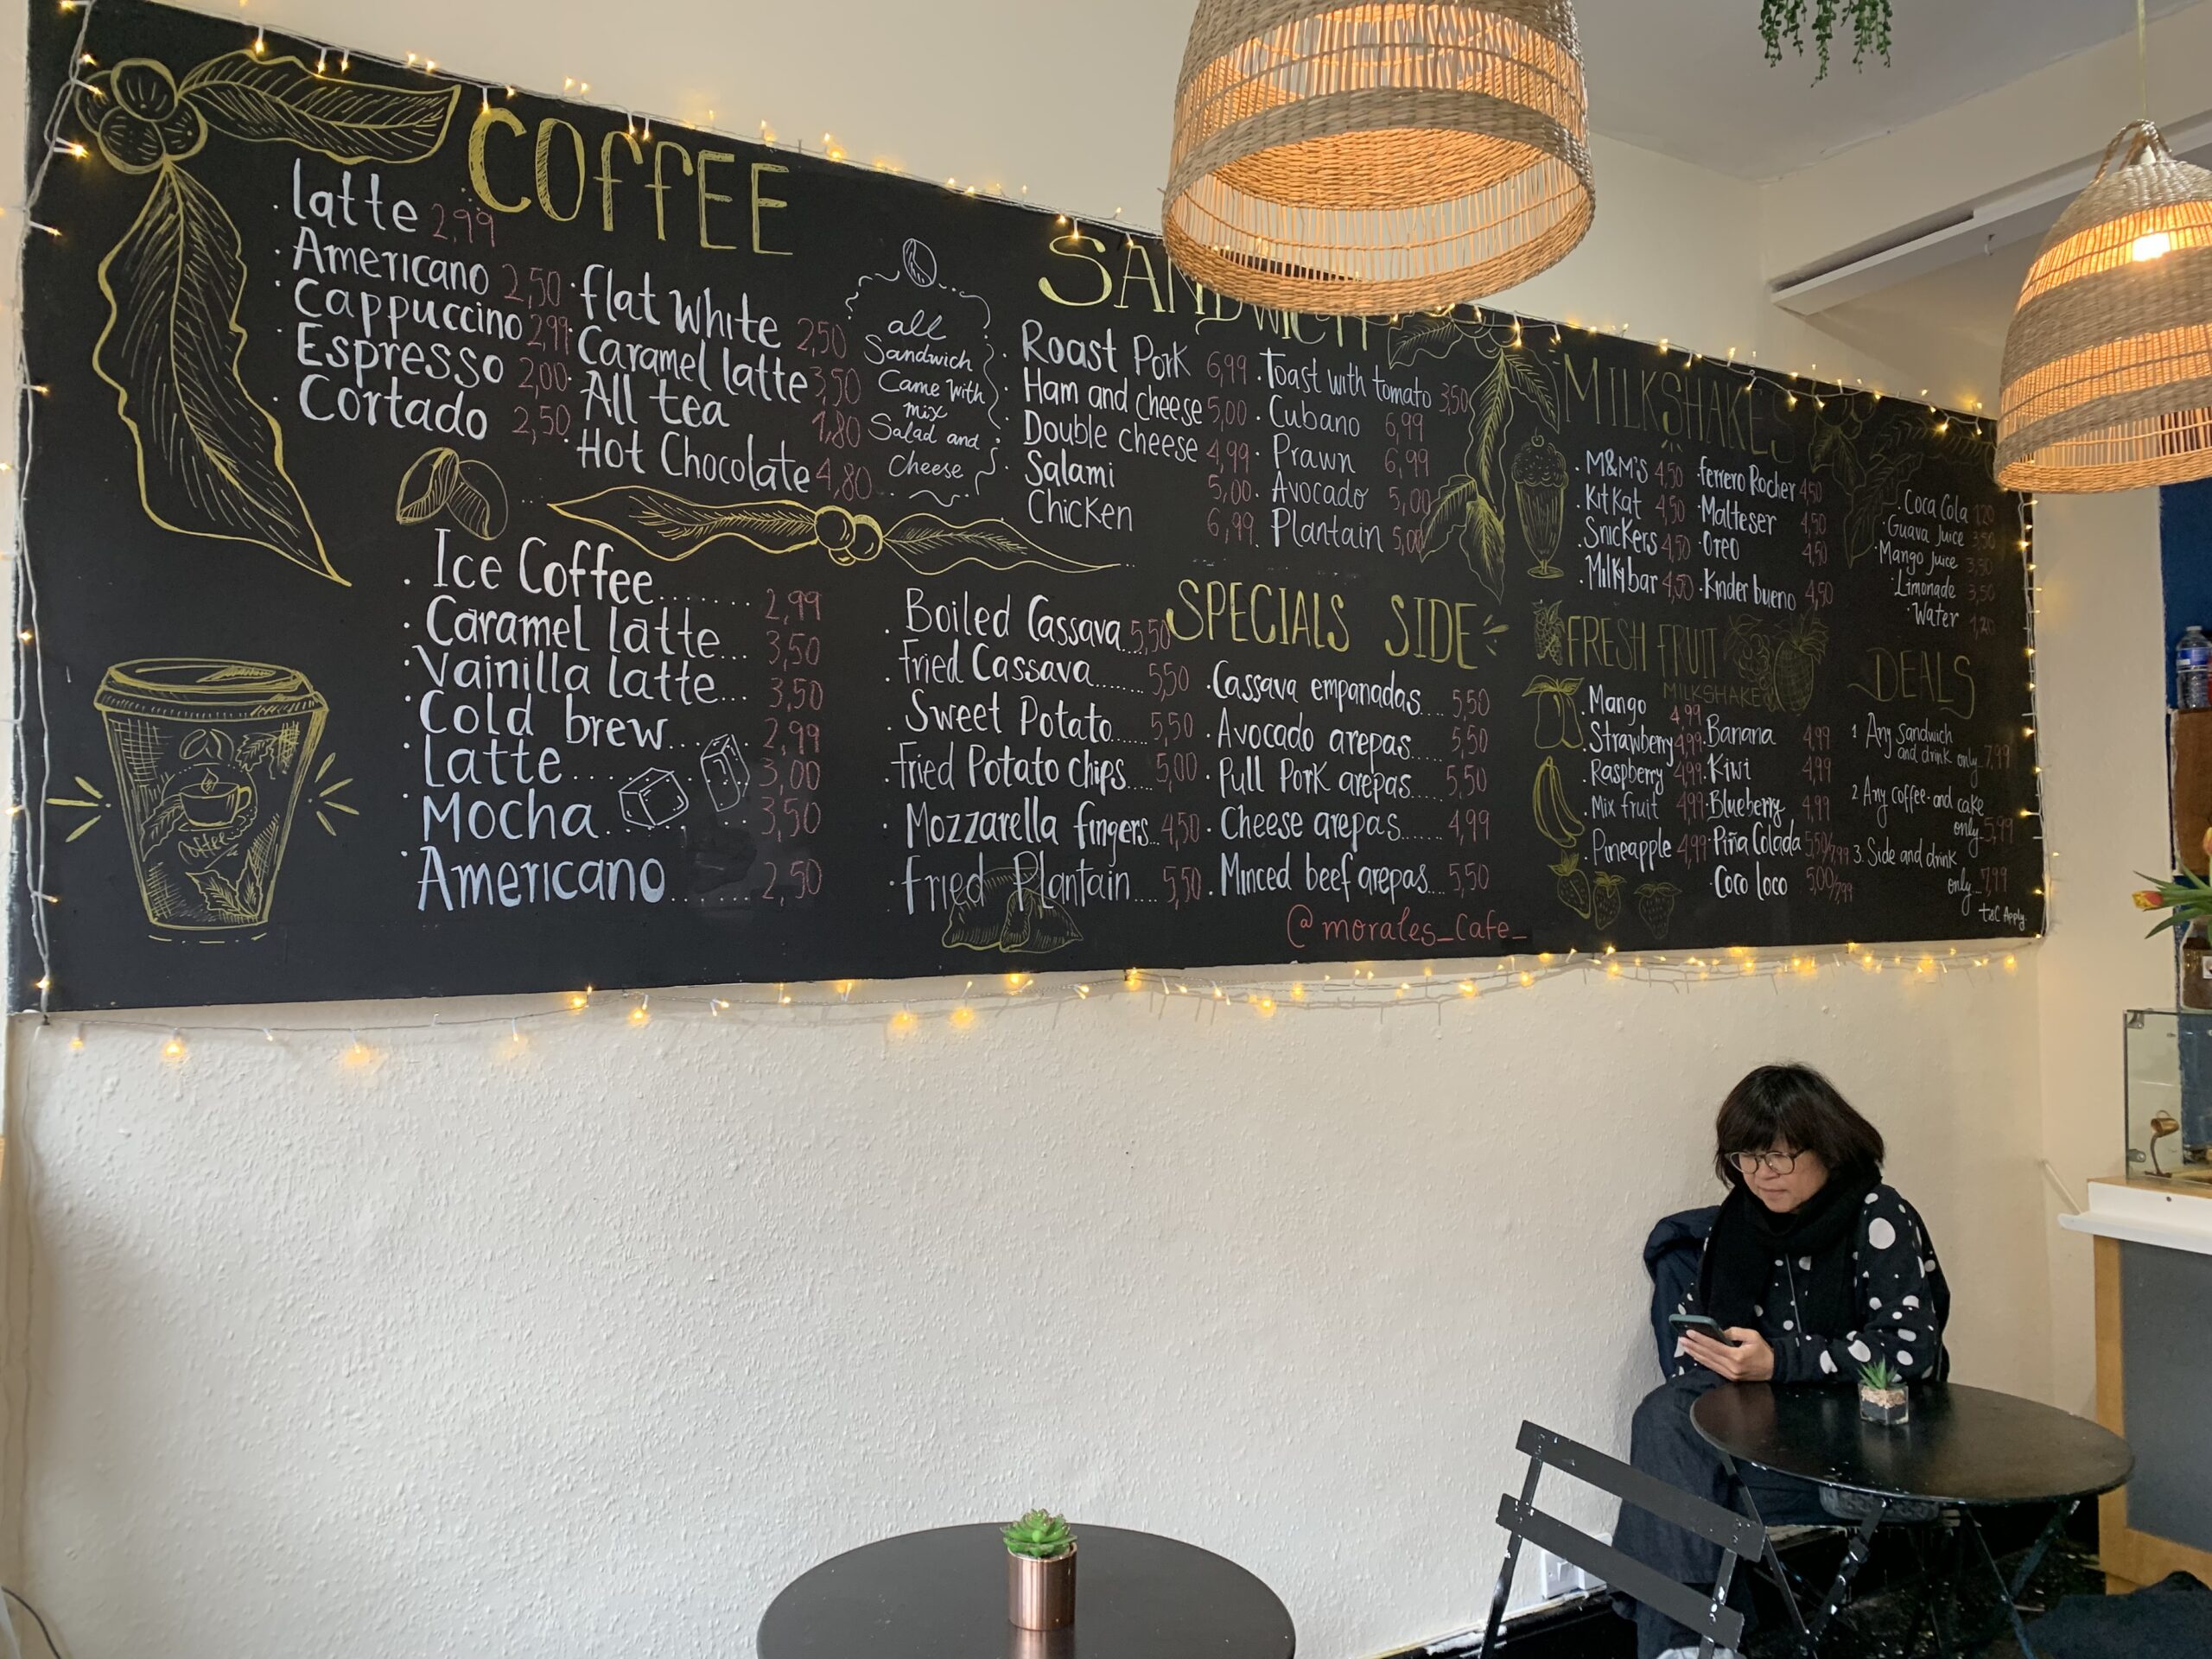 COFFEE
. latte 2,99
. Americano 2,50
. Cappuccino 2,99
. Espresso 2,00
. Cortado 2,50
. flat White 2,50
. Caramel latte 3,50
. All tea 1,80
. Hot Chocolate 4,80
all
Sandwich
Came with
mix
Salad and
Cheese
. Ice Coffee....... 2,99
. Caramel latte... 3,50
. Vainilla latte... 3,50
. Cold brew... 2,99
. Latte.... 3,00
. Mocha...... 3,50
. Americano....... 2,50
Coffee
SANDWICH
. Roast Pork 6,99
. Ham and cheese 5,00
. Double cheese 4,99
. Salami 5,00
. Chicken 6,99
. Toast with tomato 3,50
. Cubano 6,99
. Prawn 6,99
. Avocado 5,00
. Plantain 5,00
SPECIALS SIDE
. Boiled Cassava 5,50
. fried Cassava....... 5,50
. Sweet Potato...... 5,50
. fried Potato chips... 5,00
. Mozzarella fingers... 4,50
. fried Plantain.... 5,50
. Cassava empanadas.... 5,50
. Avocado arepas.... 5,50
. Pull Pork arepas..... 5,50
. Cheese arepas...... 4,99
. Minced beef arepas.... 5,50
@morales_cafe_
MILKSHAKES
. M&M'S 4,50
. KitKat 4,50
. Snickers 4,50
. Milkybar 4,50
. ferrero Rocher 4,50
. Malteser 4,50
. Oreo 4,50
. Kinder bueno 4,50
FRESH FRUIT
MILKSHAKE
. Mango 4,99
. Strawberry 4,99
. Raspberry 4,99
. Mix fruit 4,99
. Pineapple 4,99
. Banana 4,99
. Kiwi 4,99
. Blueberry 4,99
. Piña Colada 5,50/7,99
. Coco loco 5,00/7,99
. Coca Cola 1,20
. Guava Juice 3,50
. Mango Juice 3,50
. Limonade 3,50
. Water 1,20
DEALS
1 Any sandwich
and drink only 7,99
2 Any coffee and cake
only 5,99
3. Side and drink
only... 7,99
t&C Apply.